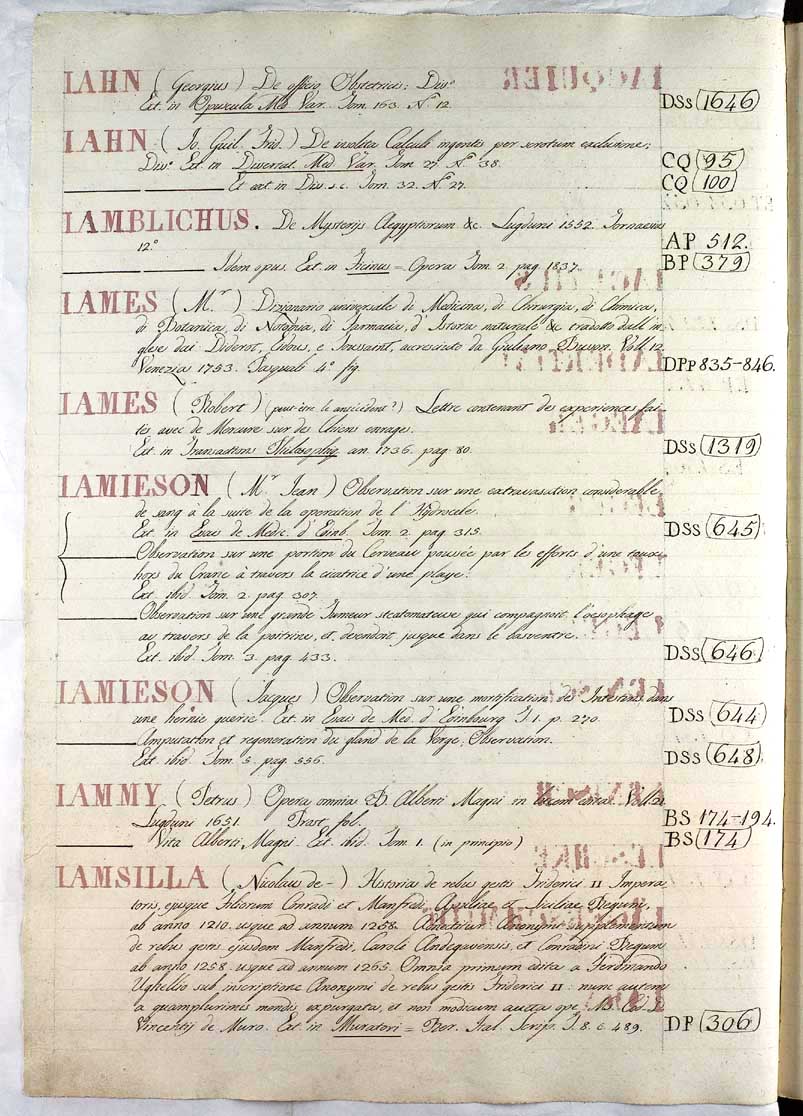 IAHN ( Georgius ) De officio Obstetricis: Diss.
Ext. in Opuscula Med. Var. Tom. 163. N.° 12. DSs 1646
IAHN ( Io. Guil. Frid. ) De insolita Calculi ingentis per scrotum exclusione;
Diss. Ext. in Dissertat. Med. Var. Tom. 27. N.° 38. CQ 95
Et ext. in Diss. s.c. Tom. 32. N.° 27. CQ 100
IAMBLICHUS. De Mysterijs Aegyptiorum &c. Lugduni 1552. Tornaesius
12.° AP 512.
Idem opus. Ext. in Ficinus = Opera Tom. 2. pag. 1837. BP 379
IAMES ( M.r ) Dizionario universale di Medicina, di Chirurgia, di Chimica,
di Botanica, di Notomia, di Farmacia, d'Istoria naturale &c. tradotto dall'in-
glese dai Diderot, Eidous, e Toussaint, accresciuto da Giuliano Busson. Voll. 12.
Venezia 1753. Pasquali 4.° fig. DPp 835-846.
IAMES ( Robert ) (peut-être le antécédent?) Lettre contenant des experiences fai-
tes avec de Mercure sur des Chiens enragés.
Ext. in Transactions Philosophiq. an. 1736. pag. 80. DSs 1319
IAMIESON ( M.r Jean ) Observation sur une extravasation considerable
de sang à la suite de la operation de l'Hydrocele.
Ext. in Essais de Medic. d'Edinb. Tom. 2. pag. 315. DSs 645
Observation sur une portion du Cerveau poussée par les efforts d'une toux
hors du Crane à travers la cicatrice d'une playe.
Ext. ibid. Tom. 2. pag. 307.
Observation sur une grande Tumeur steatomateuse qui compagnoit l'oesophage
au travers de la poitrine, et descendoit jusque dans le basventre.
Ext. ibid. Tom. 3. pag. 433. DSs 646
IAMIESON ( Jacques ) Observation sur une mortification des Intestins dans
une hernie guerie. Ext. in Essais de Med. d'Edinbourg T. 1. p. 270. DSs 644
Amputation et regeneration du gland de la Verge, Observation.
Ext. ibid. Tom. 5. pag. 556. DSs 648
IAMMY ( Petrus ) Opera omnia B. Alberti Magni in lucem edita. Voll. 21.
Lugduni 1651. Prost fol. BS 174-194.
Vita Alberti Magni. Ext. ibid. Tom. 1. (in principio) BS 174
IAMSILLA ( Nicolaus de - ) Historia de rebus gestis Friderici II Impera-
toris, ejusque Filiorum Conradi et Manfredi Apuliae et Siciliae Regum,
ab anno 1210. usque ad annum 1258. Adnectitur Anonymi supplementum
de rebus gestis ejusdem Manfredi, Caroli Andegavensis, et Conradini Regum
ab anno 1258. usque ad annum 1265. Omnia primum edita a Ferdinando
Ughellio sub inscriptione Anonymi de rebus gestis Friderici II: nunc autem
a quamplurimis mendis expurgata, et non modicum aucta ope
Vincentij de Muro. Ext. in Muratori = Rer. Ital. Scrip. T. 8. c. 489. DP 306